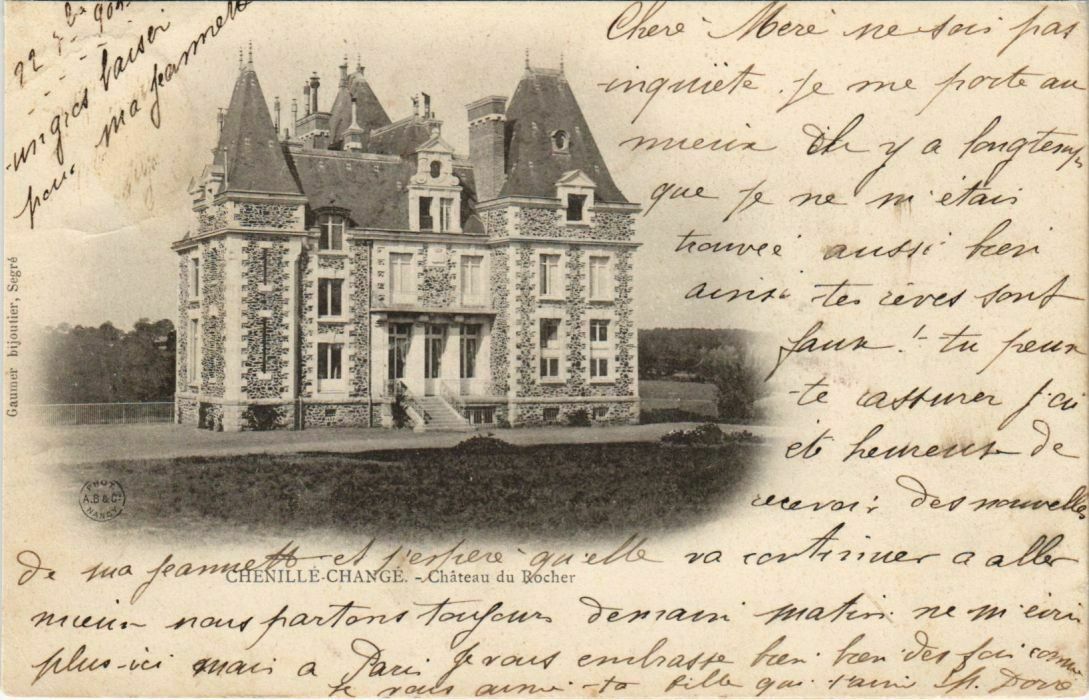 22 9bre 1903
un gros baiser
pour ma Jeannette
Cheré Meré ne sois pas
inquiète. Je me porte au
mieux Il y a longtemps
que je ne m'étais
trouveé aussi bien
ainsi tes rêves sont
faux ! tu peux
te assurer j'ai
été heureuse de
recevoir des nouvelles
de ma Jeannette et j'espère qu'elle va continuer a aller
mieux nous partons toujours demain matin ne m'écri
plus ici mais a Paris Je vous embrasse bien bien des fois comme
je vous aime ta fille qui t'aime M.
Gaumer bijoutier, Segré
PHOT
A.B & Cie
NANCY
CHENILLÉ-CHANGÉ. - Château du Rocher